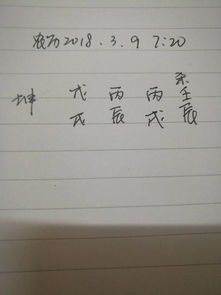 农历2018.3.9 7:20
坤 戊 丙 丙 壬
戌 辰 戌 辰